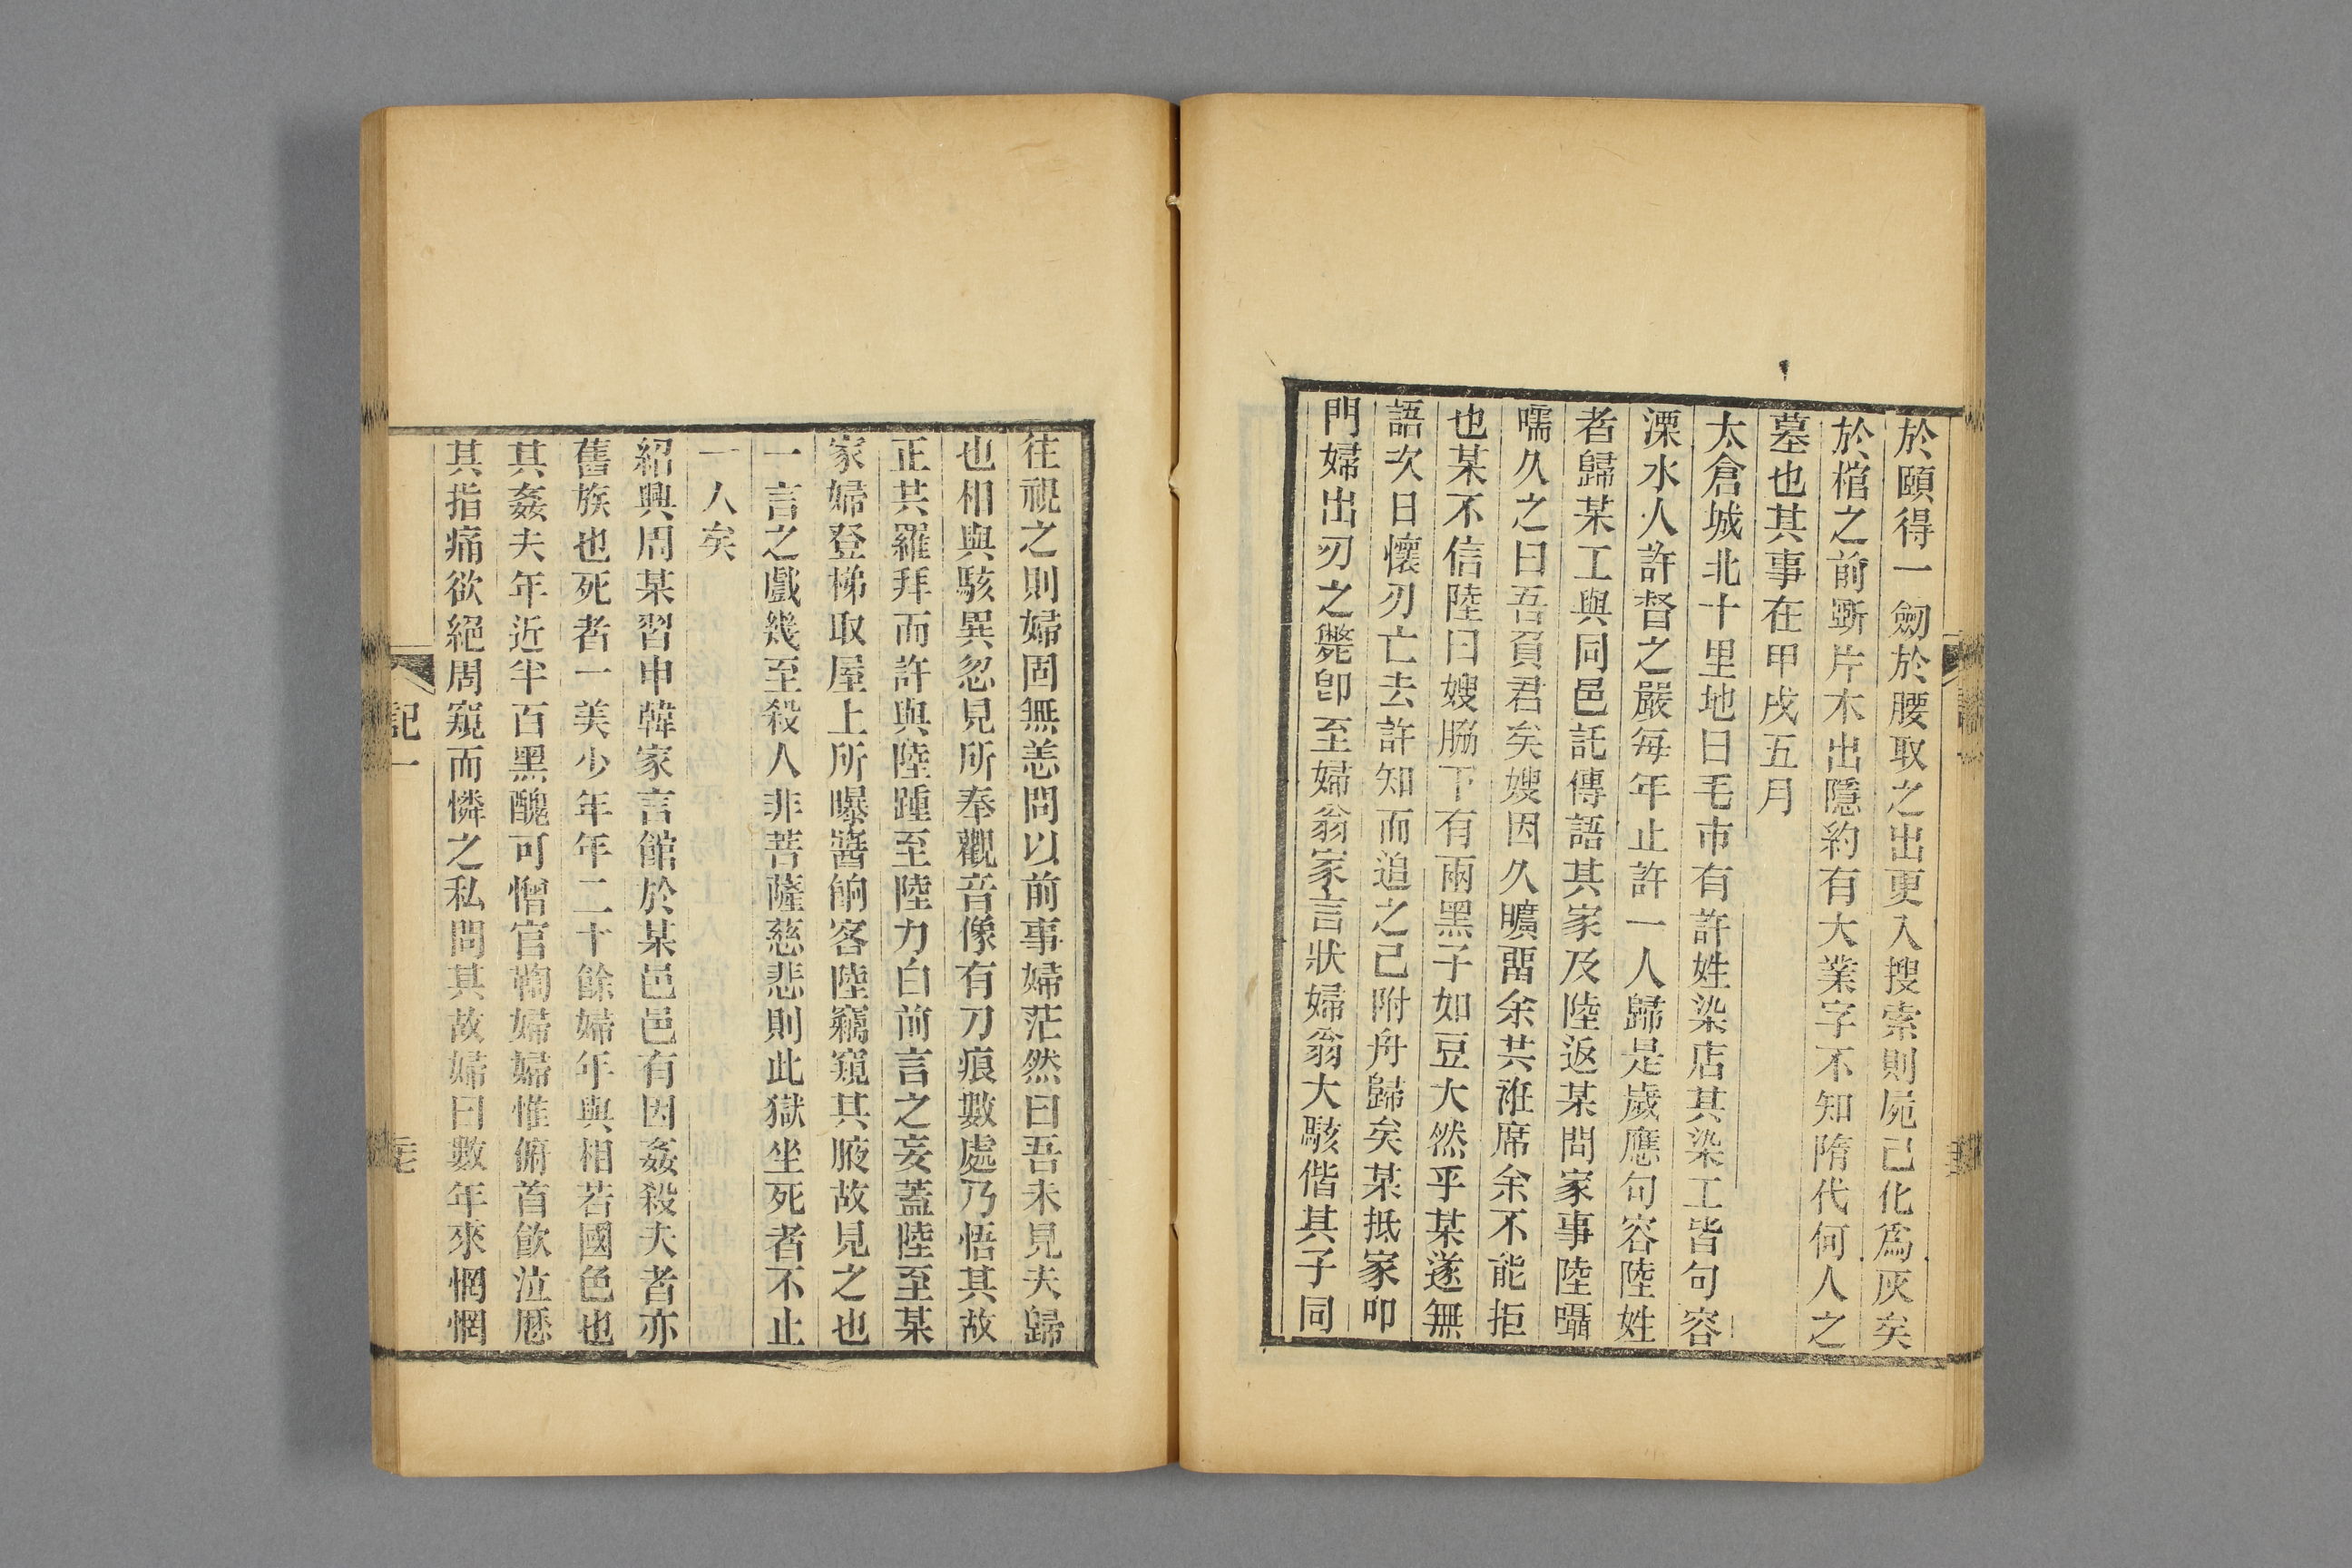 於頤得一劒於腰取之出更入搜索則屍已化爲灰矣
於棺之前斲片木出隱約有大業字不知隋代何人之
墓也其事在甲戌五月
太倉城北十里地曰毛市有許姓染店其染工皆句容
溧水人許督之嚴每年止許一人歸是歲應句容陸姓
者歸某工與同邑託傳語其家及陸返某問家事陸囁
嚅久之曰吾負君矣嫂因久曠畱余共袵席余不能拒
也某不信陸曰嫂脇下有兩黑子如豆大然乎某遂無
語次日懷刃亡去許知而追之已附舟歸矣某抵家叩
門婦出刃之斃卽至婦翁家言狀婦翁大駭偕其子同
往視之則婦固無恙問以前事婦茫然曰吾未見夫歸
也相與駭異忽見所奉觀音像有刀痕數處乃悟其故
正共羅拜而許與陸踵至陸力白前言之妄蓋陸至某
家婦登梯取屋上所曝醬餉客陸竊窺其腋故見之也
一言之戲幾至殺人非菩薩慈悲則此獄坐死者不止
一人矣
紹興周某習申韓家言館於某邑邑有因姦殺夫者亦
舊族也死者一美少年年二十餘婦年與相若國色也
其姦夫年近半百黑醜可憎官鞫婦婦惟俯首飮泣㥕
其指痛欲絕周窺而憐之私問其故婦曰數年來惘惘
記一